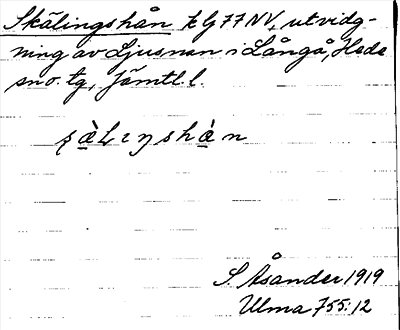 Skälingshån k G77NV, utvidg-
ning av Ljusnan i Långå, Hede
sn o. tg, Jämtl l.
ʂæ̀lıŋshàn
S. Åsander 1919
Ulma 755:12